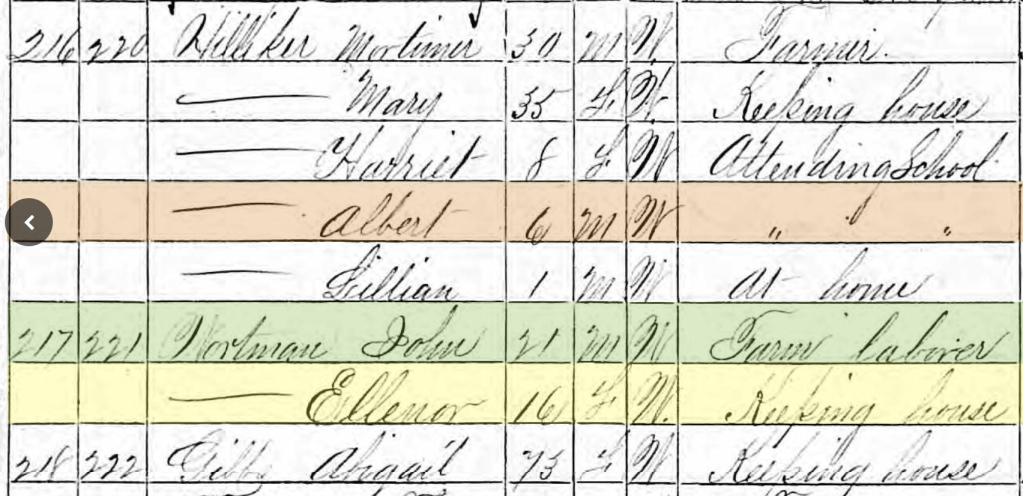 216 220 Hilliker Mortimer 30 M W. Farmer.
— Mary 35 F. W. Keeping house
— Harriet 8 F W Attending School
— Albert 6 M W " " "
— Lillian 1 M W At home
217 221 Wortman John 21 M W Farm laborer
— Ellenor 16 F W. Keeping house
218 222 Gibbs Abigail 73 F W Keeping house